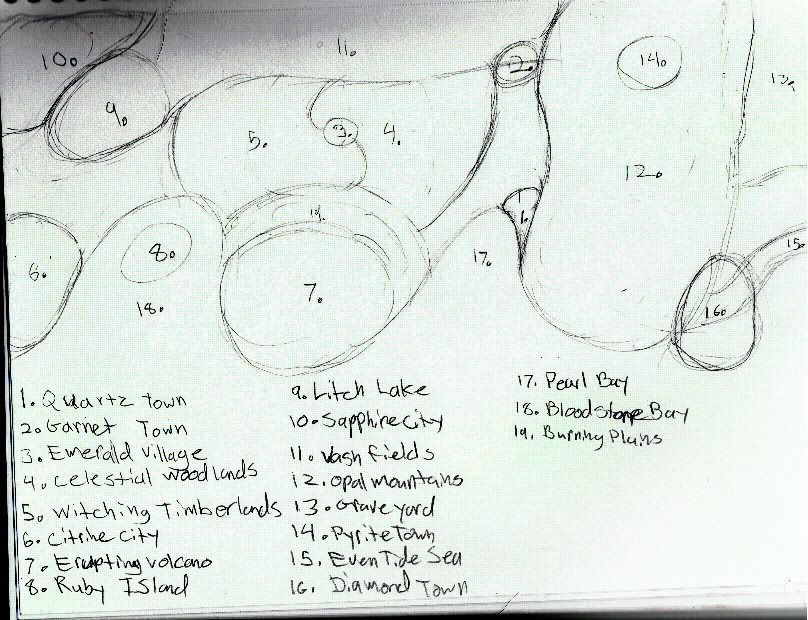 10.
11.
2.
14.
13.
9.
5.
3.
4.
12.
1.
19.
6.
8.
17.
15.
7.
18.
16.
1. Quartz town
2. Garnet Town
3. Emerald village
4. Celestial woodlands
5. Witching Timberlands
6. Citrine city
7. Erupting volcano
8. Ruby Island
9. Litch Lake
10. Sapphire city
11. Vash fields
12. Opal mountains
13. Graveyard
14. Pyrite Town
15. Even Tide Sea
16. Diamond Town
17. Pearl Bay
18. Blood Stone Bay
19. Burning Plains